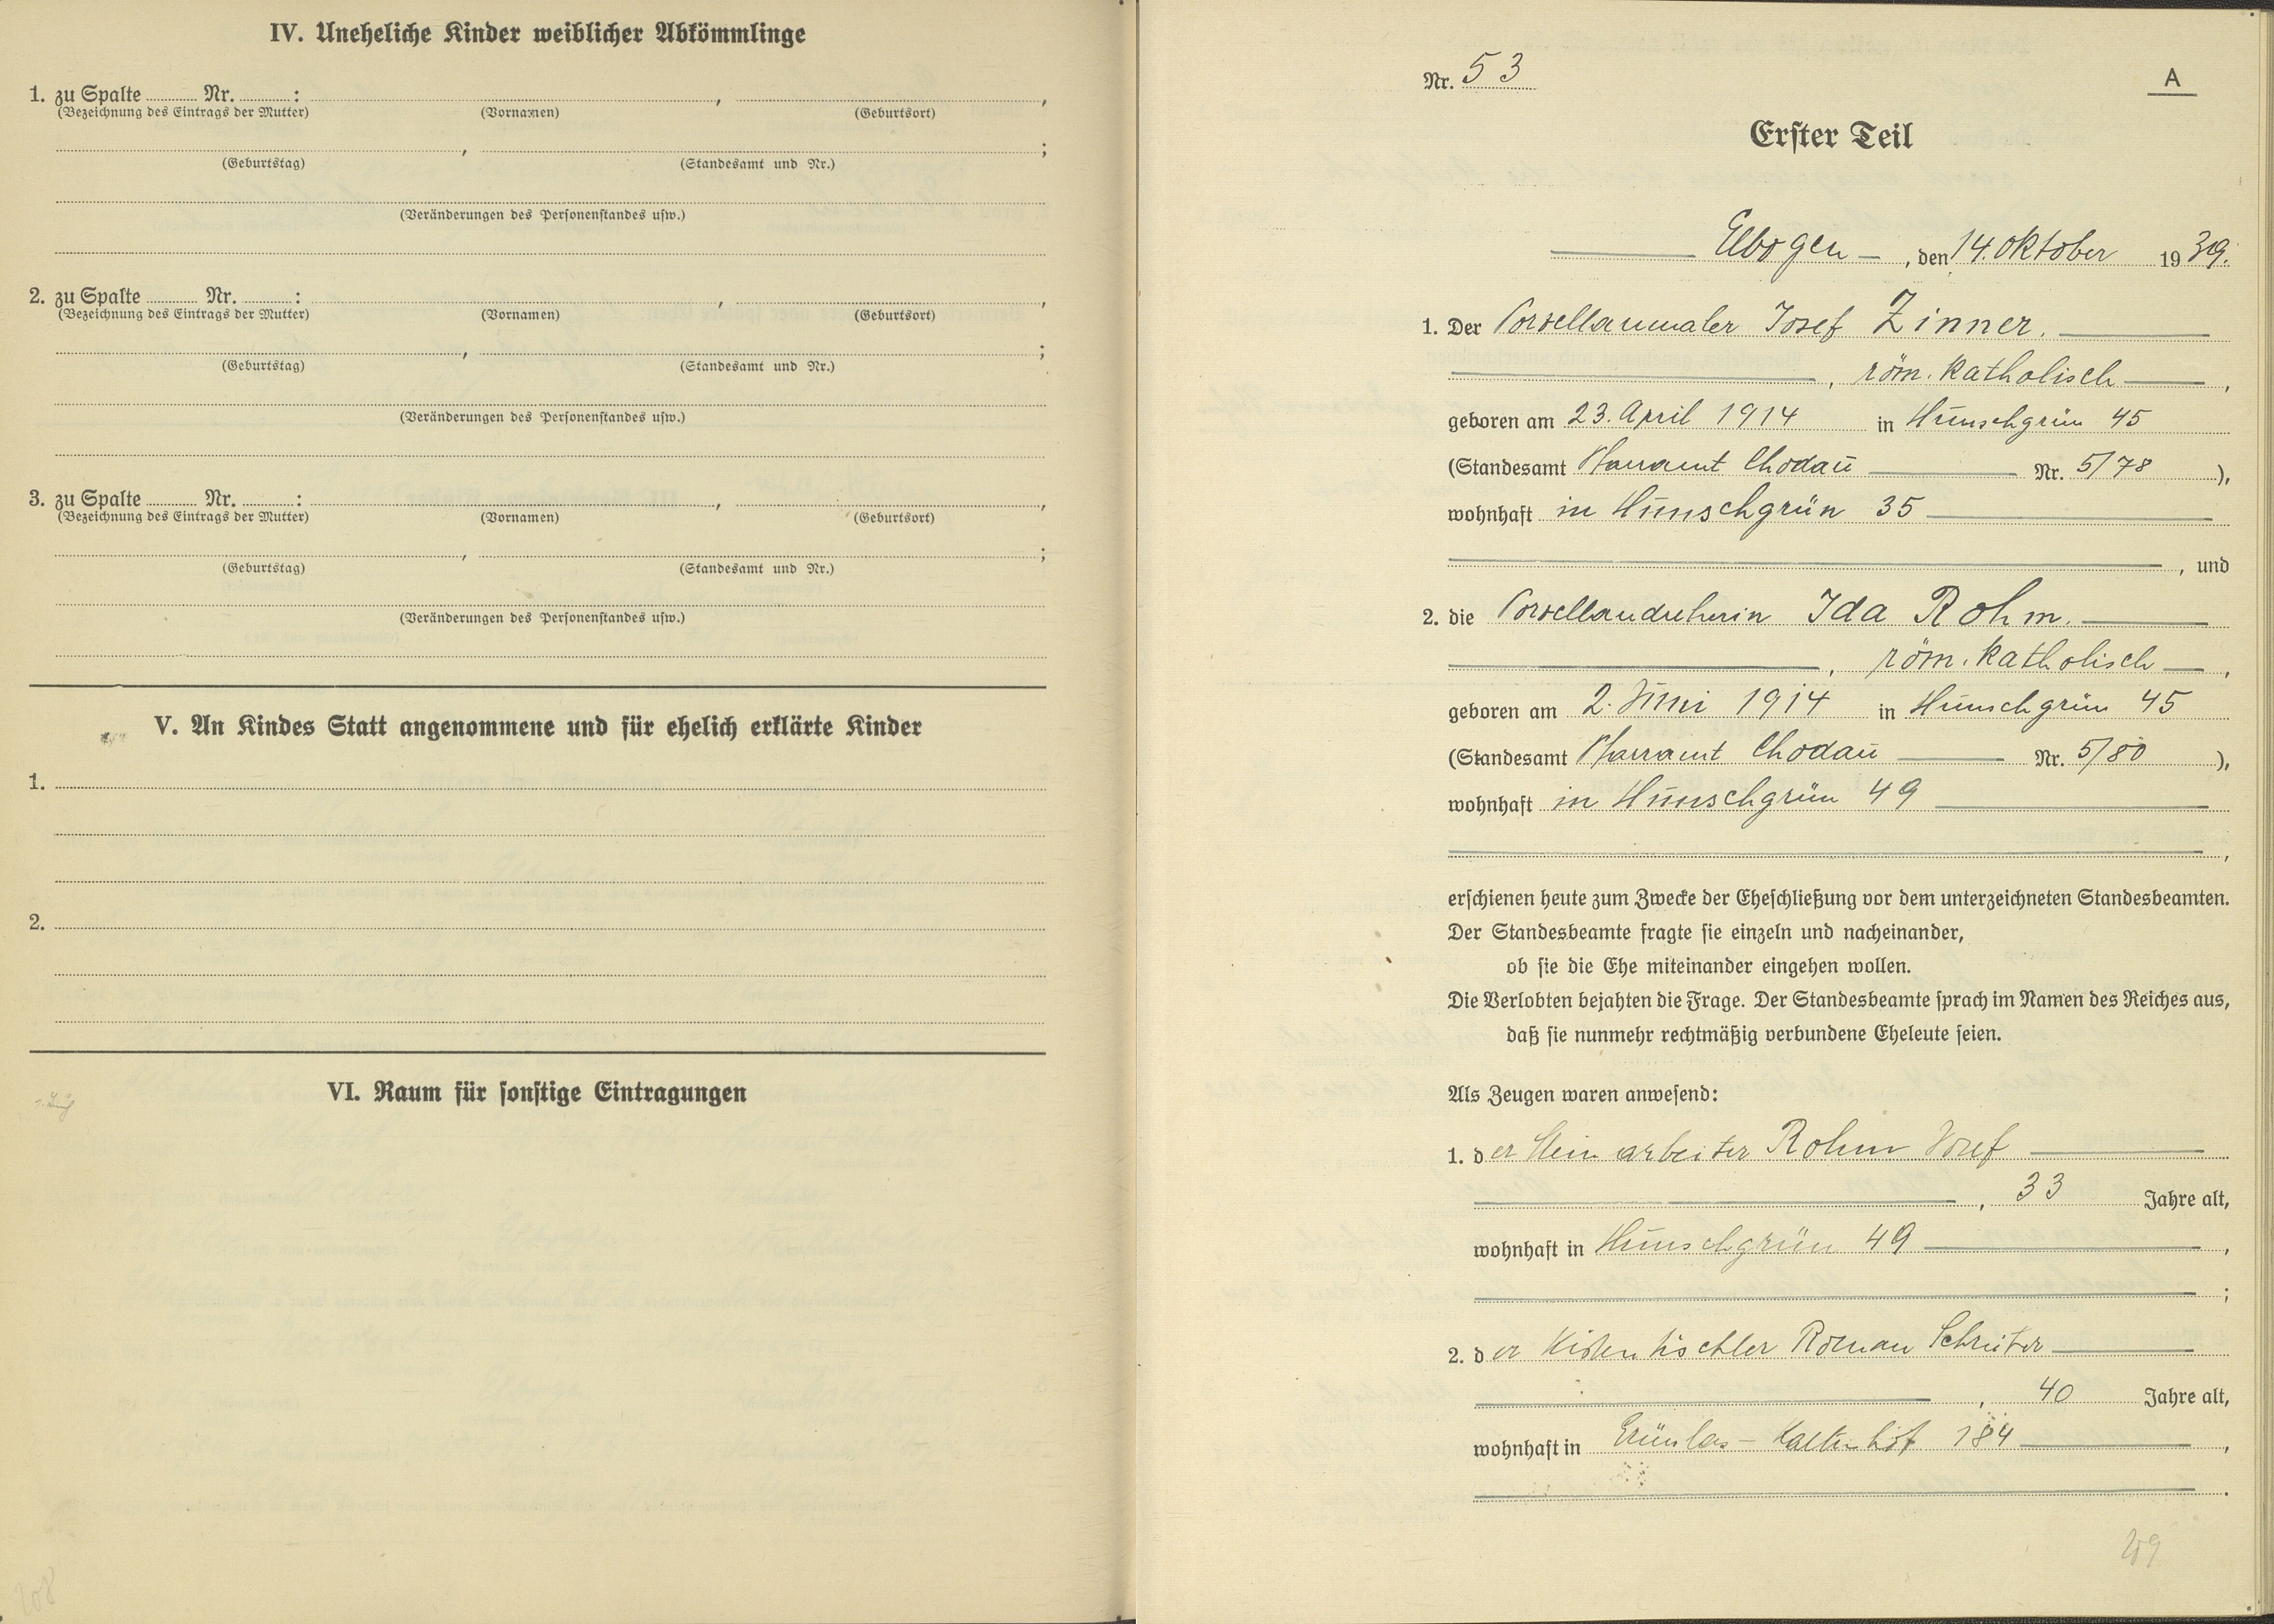 IV. Uneheliche Kinder weiblicher Abkömmlinge
1. zu Spalte ........ Nr. ........ : ........, ........,
(Bezeichnung des Eintrags der Mutter) (Vornamen) (Geburtsort)
........, ........;
(Geburtstag) (Standesamt und Nr.)
(Veränderungen des Personenstandes usw.)
2. zu Spalte ........ Nr. ........ : ........, ........,
(Bezeichnung des Eintrags der Mutter) (Vornamen) (Geburtsort)
........, ........;
(Geburtstag) (Standesamt und Nr.)
(Veränderungen des Personenstandes usw.)
3. zu Spalte ........ Nr. ........ : ........, ........,
(Bezeichnung des Eintrags der Mutter) (Vornamen) (Geburtsort)
........, ........;
(Geburtstag) (Standesamt und Nr.)
(Veränderungen des Personenstandes usw.)
V. An Kindes Statt angenommene und für ehelich erklärte Kinder
1.
2.
VI. Raum für sonstige Eintragungen
208
Nr. 53
A
Erster Teil
Elbogen, den 14. Oktober 1939.
1. Der Porzellanmaler Josef Zinner.
, röm. katholisch,
geboren am 23. April 1914 in Hunschgrün 45
(Standesamt Pfarramt Chodau Nr. 5/78),
wohnhaft in Hunschgrün 35
, und
2. die Porzellandreherin Ida Rohm.
, röm. katholisch,
geboren am 2. Juni 1914 in Hunschgrün 45
(Standesamt Pfarramt Chodau Nr. 5/80),
wohnhaft in Hunschgrün 49
,
erschienen heute zum Zwecke der Eheschließung vor dem unterzeichneten Standesbeamten.
Der Standesbeamte fragte sie einzeln und nacheinander,
ob sie die Ehe miteinander eingehen wollen.
Die Verlobten bejahten die Frage. Der Standesbeamte sprach im Namen des Reiches aus,
daß sie nunmehr rechtmäßig verbundene Eheleute seien.
Als Zeugen waren anwesend:
1. der Steinarbeiter Rohm Josef
, 33 Jahre alt,
wohnhaft in Hunschgrün 49,
;
2. der Kistentischler Roman Schreiter
, 40 Jahre alt,
wohnhaft in Grünlas - Kaltenhof 184,
.
209